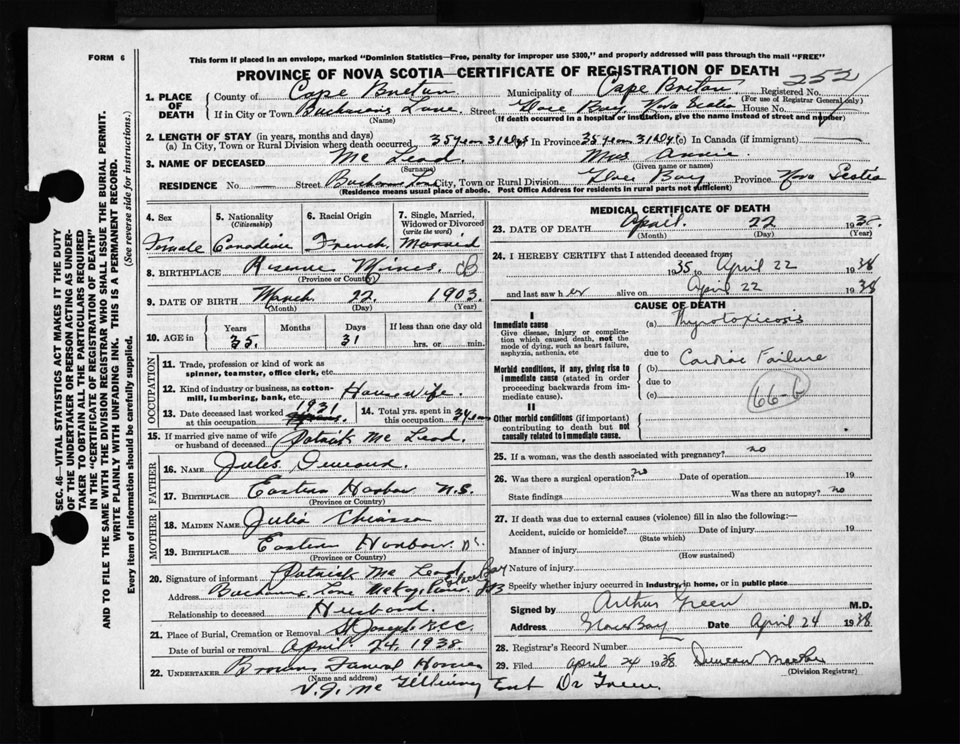 FORM 6
This form if placed in an envelope, marked "Dominion Statistics—Free, penalty for improper use $300," and properly addressed will pass through the mail "FREE"
PROVINCE OF NOVA SCOTIA—CERTIFICATE OF REGISTRATION OF DEATH
252
1. PLACE OF DEATH
County of Cape Breton Municipality of Cape Breton Registered No.
(For use of Registrar General only)
If in City or Town Buchanans Lane Street Glace Bay, Nova Scotia House No.
(Name) (If death occurred in a hospital or institution, give the name instead of street and number)
2. LENGTH OF STAY (in years, months and days)
(a) In City, Town or Rural Division where death occurred 35 years 31 dys In Province 35 years 31 dy (c) In Canada (if immigrant)
3. NAME OF DECEASED Mc Leod Mrs Annie
(Surname) (Given name or names)
RESIDENCE No. Street Buchanans Lane City, Town or Rural Division Glace Bay Province Nova Scotia
(Residence means usual place of abode. Post Office Address for residents in rural parts not sufficient)
4. Sex 5. Nationality (Citizenship) 6. Racial Origin 7. Single, Married, Widowed or Divorced (write the word)
Female Canadian French Married
8. BIRTHPLACE Reserve Mines CB
(Province or Country)
9. DATE OF BIRTH March 22 1903
(Month) (Day) (Year)
10. AGE in Years Months Days If less than one day old
35 31 hrs. or min.
OCCUPATION
11. Trade, profession or kind of work as spinner, teamster, office clerk, etc.
12. Kind of industry or business, as cotton-mill, lumbering, bank, etc. House Wife
13. Date deceased last worked at this occupation 1931 14. Total yrs. spent in this occupation
15. If married give name of wife or husband of deceased Patrick Mc Leod
FATHER
16. NAME Jules
17. BIRTHPLACE Eastern Harbor N.S.
MOTHER
18. MAIDEN NAME Julia Chiasson
19. BIRTHPLACE Eastern Harbour
(Province or Country)
20. Signature of informant Patrick Mc Leod
Address Buchanans Lane Glace Bay
Relationship to deceased Husband
21. Place of Burial, Cremation or Removal St Josephs RCC
Date of burial or removal April 24, 1938
22. UNDERTAKER Browns Funeral Homes
(Name and address)
V. J. Mc Gillivray Ent Dr Green
MEDICAL CERTIFICATE OF DEATH
23. DATE OF DEATH April 22 1938
(Month) (Day) (Year)
24. I HEREBY CERTIFY that I attended deceased from
1935 to April 22 1938
and last saw her alive on April 22 1938
CAUSE OF DEATH
I
Immediate cause (a) Thyrotoxicosis
Give disease, injury or complication which caused death, not the mode of dying, such as heart failure, asphyxia, asthenia, etc
due to
Morbid conditions, if any, giving rise to immediate cause (stated in order proceeding backwards from immediate cause).
(b) Cardiac Failure
due to
(c)
66-6
II
Other morbid conditions (if important) contributing to death but not causally related to immediate cause.
25. If a woman, was the death associated with pregnancy? no
26. Was there a surgical operation? no Date of operation 19
State findings Was there an autopsy? no
27. If death was due to external causes (violence) fill in also the following:—
Accident, suicide or homicide? Date of injury 19
(State which)
Manner of injury
(How sustained)
Nature of injury
Specify whether injury occurred in industry, in home, or in public place
Signed by Arthur Green M.D.
Address Glace Bay Date April 24 1938
28. Registrar's Record Number
29. Filed April 24 1938 Duncan
(Division Registrar)
SEC. 46—VITAL STATISTICS ACT MAKES IT THE DUTY
OF THE UNDERTAKER OR PERSON ACTING AS UNDER-
TAKER TO OBTAIN ALL THE PARTICULARS REQUIRED
IN THE "CERTIFICATE OF REGISTRATION OF DEATH"
AND TO FILE THE SAME WITH THE DIVISION REGISTRAR WHO SHALL ISSUE THE BURIAL PERMIT.
WRITE PLAINLY WITH UNFADING INK. THIS IS A PERMANENT RECORD.
Every item of information should be carefully supplied. (See reverse side for instructions.)